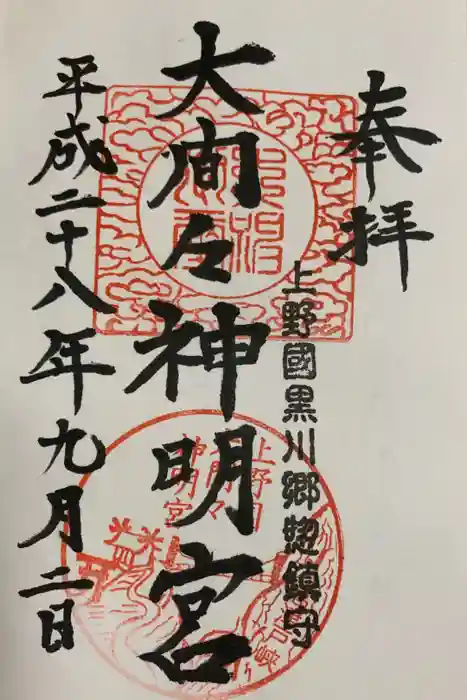 奉拝
上野國黒川郷惣鎮守
大間々神明宮
平成二十八年九月二日
上野国
大間々
神明宮